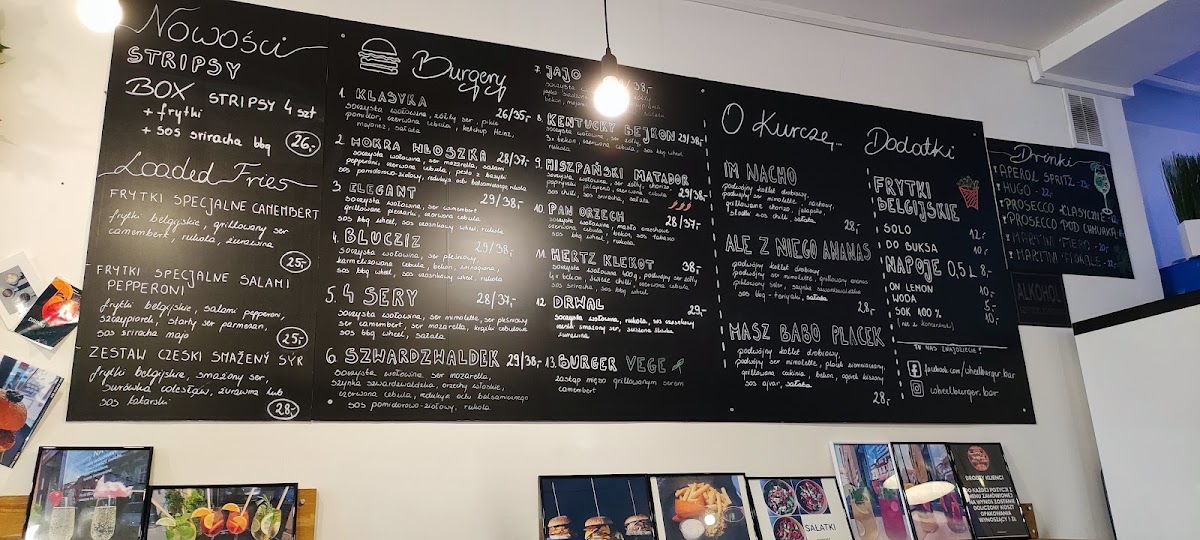 Nowości
STRIPSY
BOX STRIPSY 4 szt
+ frytki
+ sos sriracha bbq 26,-
Loaded Fries
FRYTKI SPECJALNE CAMEMBERT
frytki belgijskie, grillowany ser
camembert, rukola, żurawina
25,-
FRYTKI SPECJALNE SALAMI
PEPPERONI
frytki belgijskie, salami pepperoni,
szczypiorek, starty ser parmezan,
sos sriracha mayo
25,-
ZESTAW CZESKI SMAŻONY SYR
frytki belgijskie, smażony ser,
surówka colesław, żurawina lub
sos tatarski
28,-
Burgery
1. KLASYKA 26/35,-
soczysta wołowina, żółty ser, pikle
pomidor, czerwona cebula, ketchup Heinz,
majonez, sałata
2. MOKRA WŁOSZKA 28/37,-
soczysta wołowina, ser mozarella, salami
pepperoni, czerwona cebula, pesto z bazylii
sos pomidorowo-ziołowy, redukcja octu balsamicznego, rukola
3. ELEGANT 29/38,-
soczysta wołowina, ser camembert
grillowane pieczarki, czerwona cebula
sos bbq wheel, sos czosnkowy wheel, rukola
4. BLUCZIZ 29/38,-
soczysta wołowina, ser pleśniowy,
karmelizowana cebula, bekon, winogrona,
sos bbq wheel, sos czosnkowy wheel, rukola
5. 4 SERY 28/37,-
soczysta wołowina, ser mimolette, ser pleśniowy
ser camembert, ser mozarella, krążki cebulowe
sos bbq wheel, sałata
6. SZWARDZWALDEK 29/38,-
soczysta wołowina, ser mozarella,
szynka szwardzwaldzka, orzechy włoskie,
czerwona cebula, redukcja octu balsamicznego
sos pomidorowo-ziołowy, rukola
7. JAJO /38,-
soczysta
8. KENTUCKY BEJKON 29/38,-
soczysta wołowina, ser żółty,
3x bekon, czerwona cebula, sos bbq wheel
rukola
9. HISZPAŃSKI MATADOR
soczysta wołowina, ser żółty, chorizo,
papryczki jalapeno, czerwona cebula,
sos chili, sos sriracha, sałata
29/38,-
10. PAN ORZECH 28/37,-
soczysta wołowina, masło orzechowe
czerwona cebula, bekon, sos tabasco
sos bbq wheel, rukola
11. HERTZ KLEKOT 38,-
soczysta wołowina 400g, podwójny ser żółty
4x bekon, świeże chilli, czerwona cebula
sos sriracha, sos bbq wheel
12. DRWAL 29,-
soczysta wołowina, rukola, sos czosnkowy
13. BURGER VEGE
zastąp mięso grillowanym serem
camembert
O Kurczę...
IM NACHO
podwójny kotlet drobiowy,
podwójny ser mimolette, nachosy,
grillowane chorizo, jalapeño,
słodki sos chili, sałata
28,-
ALE Z NIEGO ANANAS
podwójny kotlet drobiowy
podwójny ser mimolette, grillowany ananas
sos bbq - teriyaki, sałata
28,-
MASZ BABO PLACEK
podwójny kotlet drobiowy,
podwójny ser mimolette, placek ziemniaczany,
grillowana cukinia, bekon, ogórek kiszony
sos ajvar, sałata
28,-
Dodatki
FRYTKI
BELGIJSKIE
SOLO 12,-
DO BUKSA 10,-
NAPOJE 0,5 L 8,-
ON LEMON 10,-
WODA 5,-
SOK 100% 10,-
TU NAS ZNAJDZIECIE!
facebook.com/wheelburger.bar
wheelburger.bar
Drinki
APEROL SPRITZ
HUGO
PROSECCO KLASYCZNE
PROSECCO POD CHMURKĄ
MARTINI FIERO
MARTINI FIORELE
ALKOHOL
SAŁATKI
DRODZY KLIENCI
DO KAŻDEJ POZYCJI Z
MENU ZAMÓWIONEJ
NA WYNOS ZOSTANIE
DOLICZONY KOSZT
OPAKOWANIA
WYNOSZĄCY 1 ZŁ